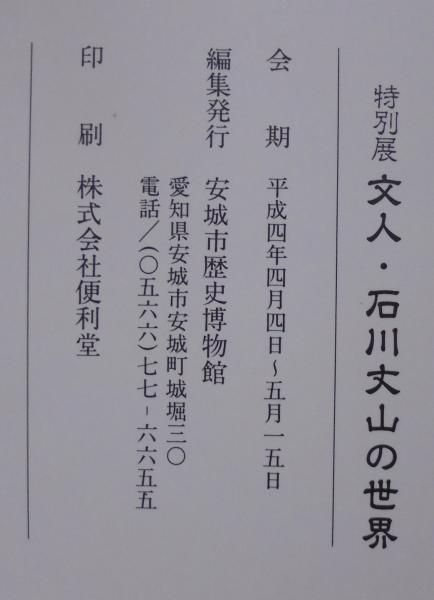 特別展 文人・石川丈山の世界
会期 平成四年四月四日～五月一五日
編集発行 安城市歴史博物館
愛知県安城市安城町城堀三〇
電話／(〇五六六)七七-六六五五
印刷 株式会社便利堂